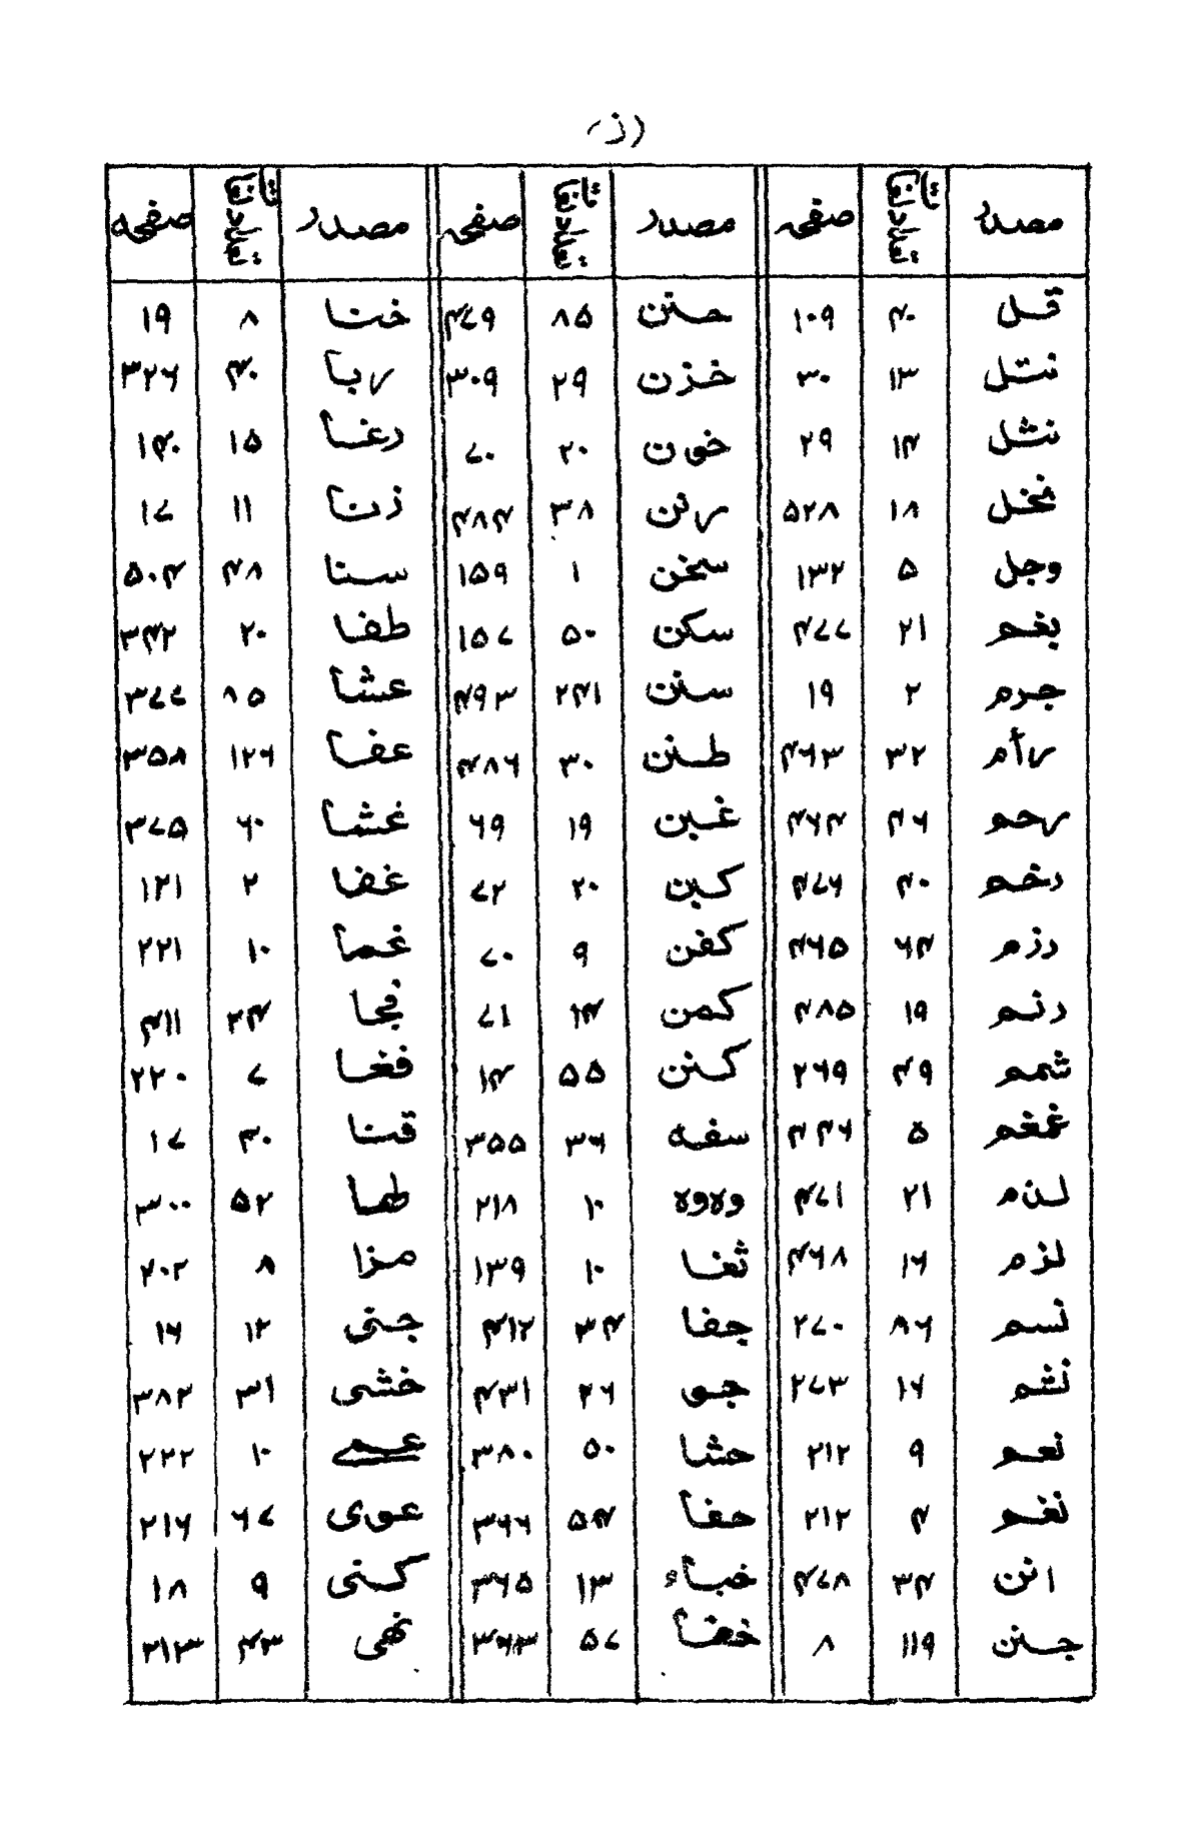 (ز)
مصدر تعداد لغات صفحہ مصدر تعداد لغات صفحہ مصدر تعداد لغات صفحہ
قتل ۴۰ ۱۰۹ حنن ۸۵ ۴۷۹ ختا ۸ ۱۹
نتل ۱۳ ۳۰ خزن ۲۹ ۳۰۹ ربا ۴۰ ۳۲۶
نثل ۱۴ ۲۹ خون ۲۰ ۷۰ رغا ۱۵ ۱۴۰
نخل ۱۸ ۵۲۸ رنن ۳۸ ۴۸۴ زنا ۱۱ ۱۷
وجل ۵ ۱۳۲ سخن ۱ ۱۵۹ سنا ۴۸ ۵۰۴
بغم ۲۱ ۴۷۷ سکن ۵۰ ۱۵۷ طفا ۲۰ ۳۴۲
جرم ۲ ۱۹ سنن ۲۴۱ ۴۹۳ عشا ۸۵ ۳۷۷
رأم ۳۲ ۴۶۳ طنن ۳۰ ۴۸۶ عفا ۱۲۶ ۳۵۸
رحم ۴۶ ۴۶۴ غبن ۱۹ ۶۹ غشا ۶۰ ۳۷۵
رخم ۴۰ ۴۷۶ کبن ۲۰ ۷۲ غفا ۲ ۱۲۱
رزم ۶۴ ۴۶۵ کفن ۹ ۷۰ غما ۱۰ ۲۲۱
رنم ۱۹ ۴۸۵ کمن ۱۴ ۷۱ فجا ۲۴ ۴۱۱
شمم ۴۹ ۲۶۹ کنن ۵۵ ۱۴ فغا ۷ ۲۲۰
غمغم ۵ ۴۴۶ سفہ ۳۶ ۳۵۵ قنا ۳۰ ۱۷
لذم ۲۱ ۴۷۱ وہوہ ۱۰ ۲۱۸ طما ۵۲ ۳۰۰
لزم ۱۶ ۴۶۸ ثغا ۱۰ ۱۳۹ مزا ۸ ۲۰۲
نسم ۸۶ ۲۷۰ جفا ۳۴ ۴۱۲ جنی ۱۲ ۱۶
نشم ۱۶ ۲۷۳ جو ۲۶ ۴۳۱ خشی ۳۱ ۳۸۲
نعم ۹ ۲۱۲ حشا ۵۰ ۳۸۰ عمے ۱۰ ۲۲۲
نغم ۴ ۲۱۲ حفا ۵۴ ۳۶۶ عوی ۶۷ ۲۱۶
انن ۳۴ ۴۷۸ خباء ۱۳ ۳۶۵ کنی ۹ ۱۸
جنن ۱۱۹ ۸ خفا ۵۷ ۳۶۳ نہی ۴۳ ۲۱۳